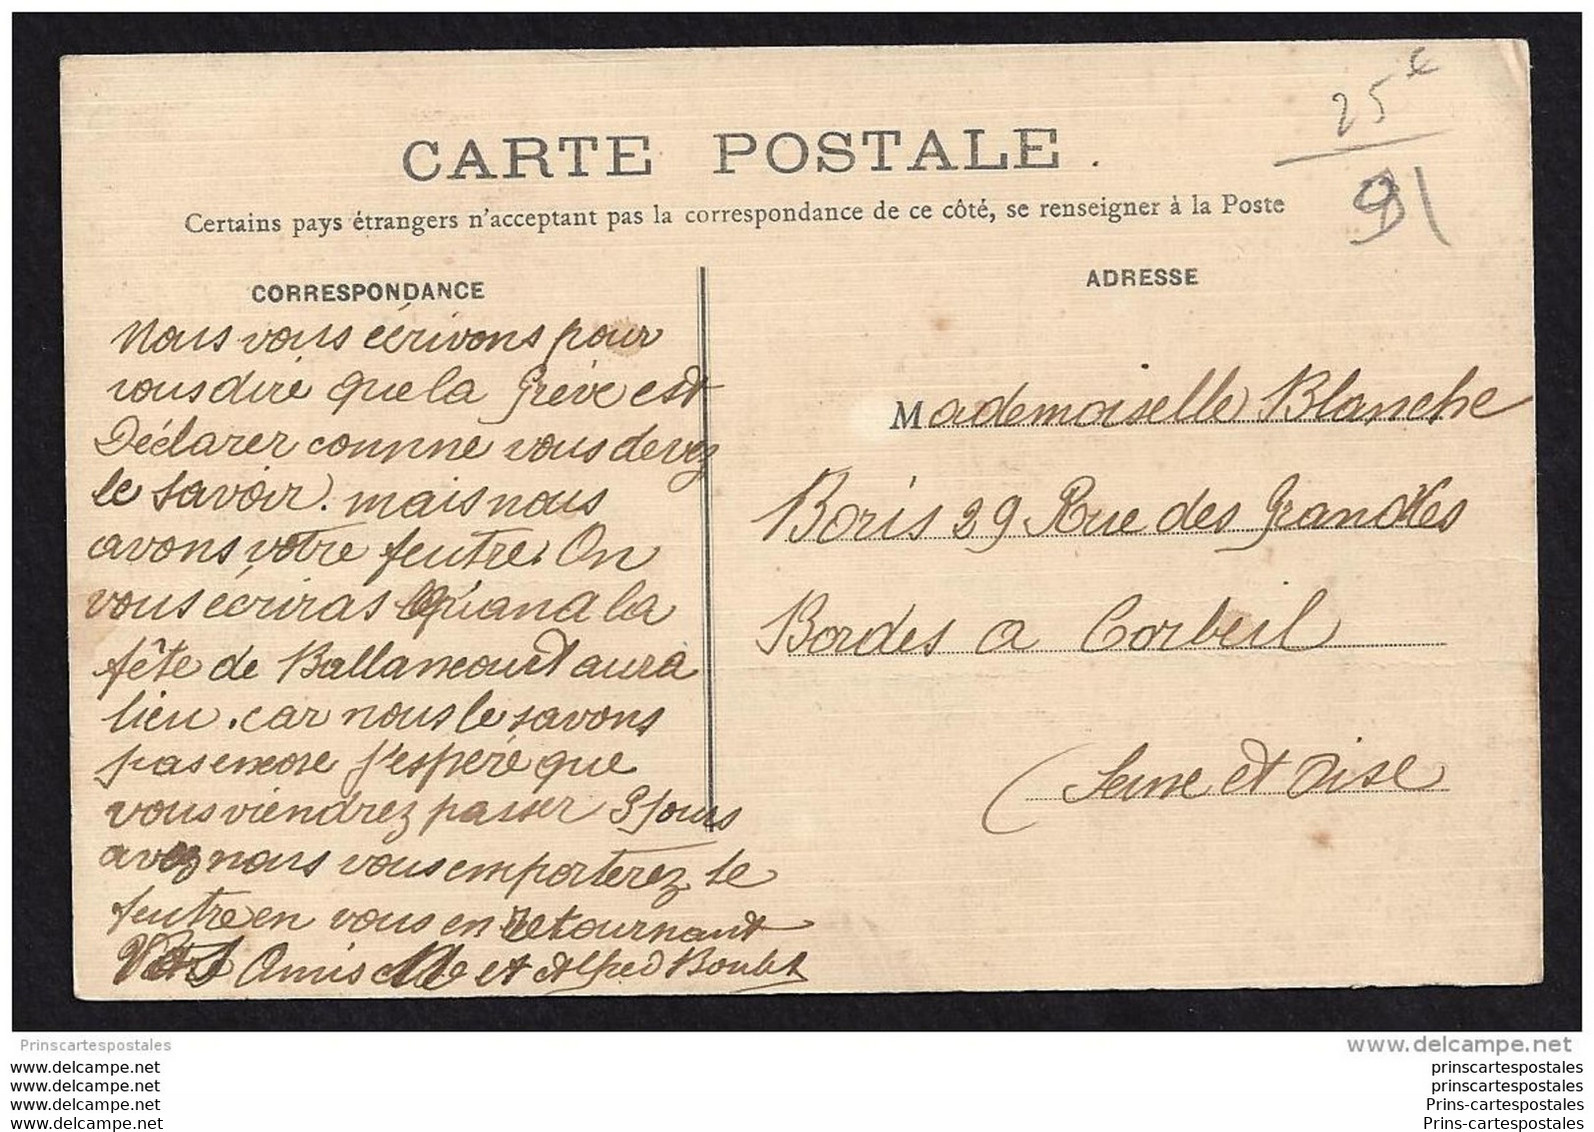 25 €
91
CARTE POSTALE.
Certains pays étrangers n'acceptant pas la correspondance de ce côté, se renseigner à la Poste
CORRESPONDANCE
Nous vous écrivons pour
vous dire que la Grève est
Déclarer comme vous devez
le savoir. mais nous
avons votre feutre. On
vous écriras Quand la
fête de Ballancourt aura
lieu. car nous le savons
pas encore J'espère que
vous viendrez passer 8 Jours
avez nous vous emporterez le
feutre en vous en retournant
Vos Amis Mle et Alfred Boulet
ADRESSE
Mademoiselle Blanche
Boris 29 Rue des Grandes
Bordes a Corbeil
(Seine et Oise
Prinscartespostales
www.delcampe.net
www.delcampe.net
www.delcampe.net
www.delcampe.net
www.delcampe.net
prinscartespostales
prinscartespostales
Prins-cartespostales
Prins-cartespostales